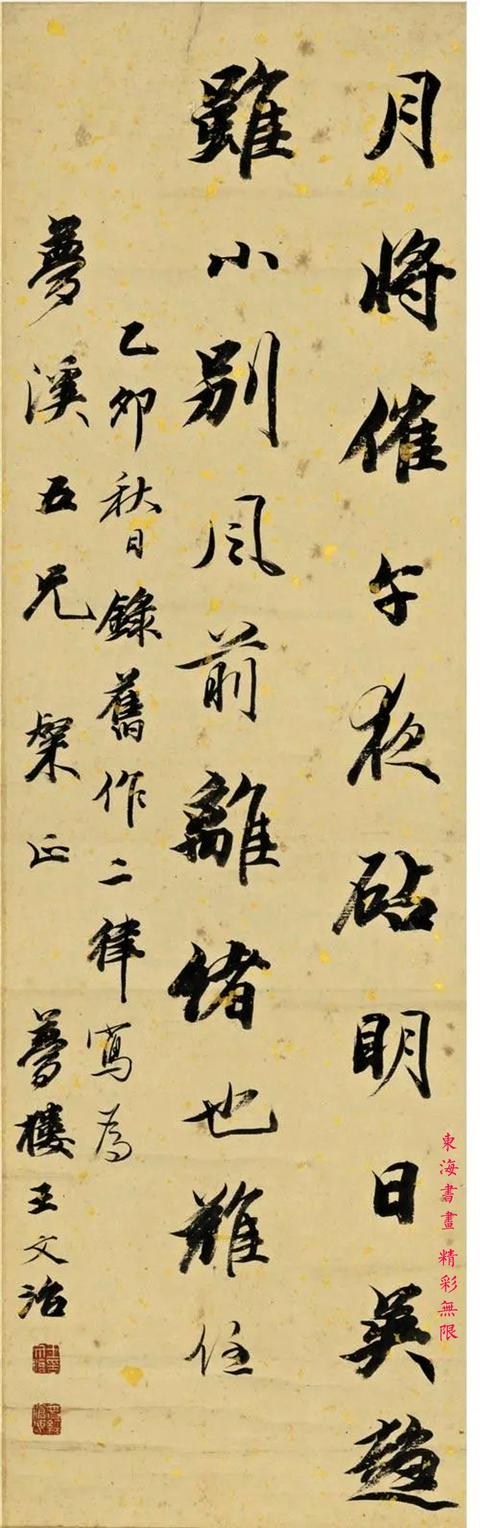 月將催午夜砧明日吳趨
雖小別風前離緒也難任
乙卯秋日錄舊作二律寫為
夢溪五兄 粲正 夢樓王文治
東海書畫 精彩無限